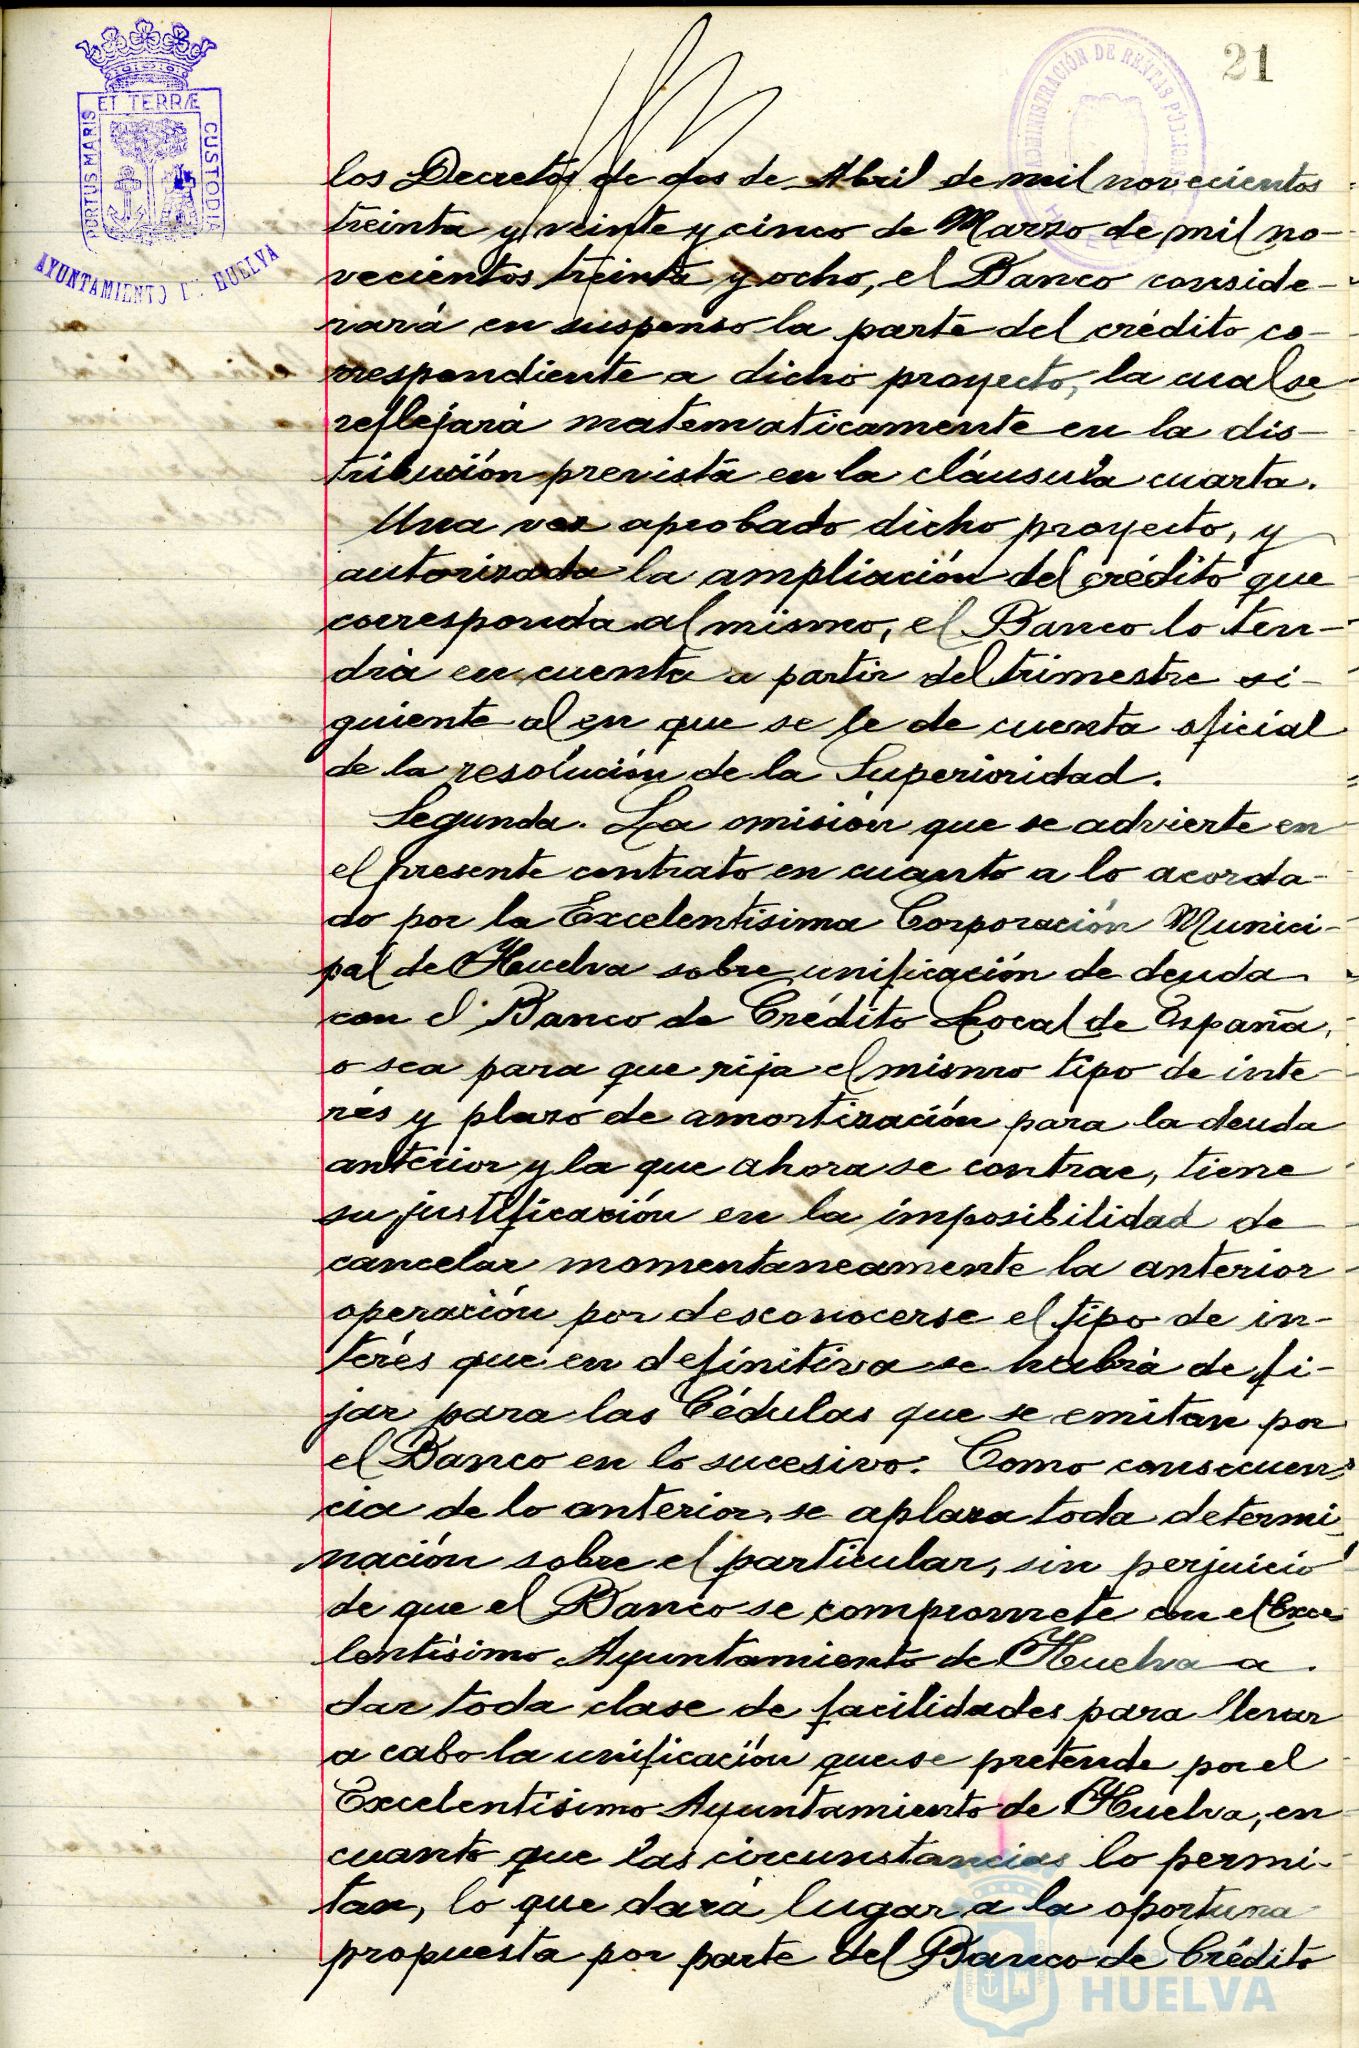 21
ET TERRÆ
PORTUS MARIS
CUSTODIA
AYUNTAMIENTO DE HUELVA
ADMINISTRACIÓN DE RENTAS PÚBLICAS
los Decretos de dos de Abril de mil novecientos
treinta y veinte y cinco de Marzo de mil no-
vecientos treinta y ocho, el Banco conside-
rará en suspenso la parte del crédito co-
rrespondiente a dicho proyecto, la cual se
reflejará matematicamente en la dis-
tribución prevista en la cláusula cuarta.
Una vez aprobado dicho proyecto, y
autorizada la ampliación del crédito que
corresponda al mismo, el Banco lo ten-
drá en cuenta a partir del trimestre si-
guiente al en que se le de cuenta oficial
de la resolución de la Superioridad.
Segunda. La omisión que se advierte en
el presente contrato en cuanto a lo acorda-
do por la Excelentísima Corporación Munici-
pal de Huelva sobre unificación de deuda
con el Banco de Crédito Local de España,
o sea para que rija el mismo tipo de inte-
rés y plazo de amortización para la deuda
anterior y la que ahora se contrae, tiene
su justificación en la imposibilidad de
cancelar momentaneamente la anterior
operación por desconocerse el tipo de in-
terés que en definitiva se habrá de fi-
jar para las Cédulas que se emitan por
el Banco en lo sucesivo. Como consecuen-
cia de lo anterior, se aplaza toda determi
nación sobre el particular, sin perjuicio
de que el Banco se compromete con el Exce-
lentísimo Ayuntamiento de Huelva a
dar toda clase de facilidades para llevar
a cabo la unificación que se pretende por el
Excelentísimo Ayuntamiento de Huelva, en
cuanto que las circunstancias lo permi-
tan, lo que dará lugar a la oportuna
propuesta por parte del Banco de Crédito
HUELVA